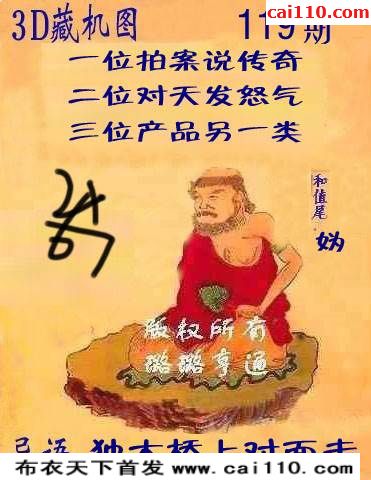 cai110.com
3D藏机图 119期
一位拍案说传奇
二位对天发怒气
三位产品另一类
和值尾
版权所有
璐璐亨通
独木桥上对面走
布衣天下首发 www.cai110.com